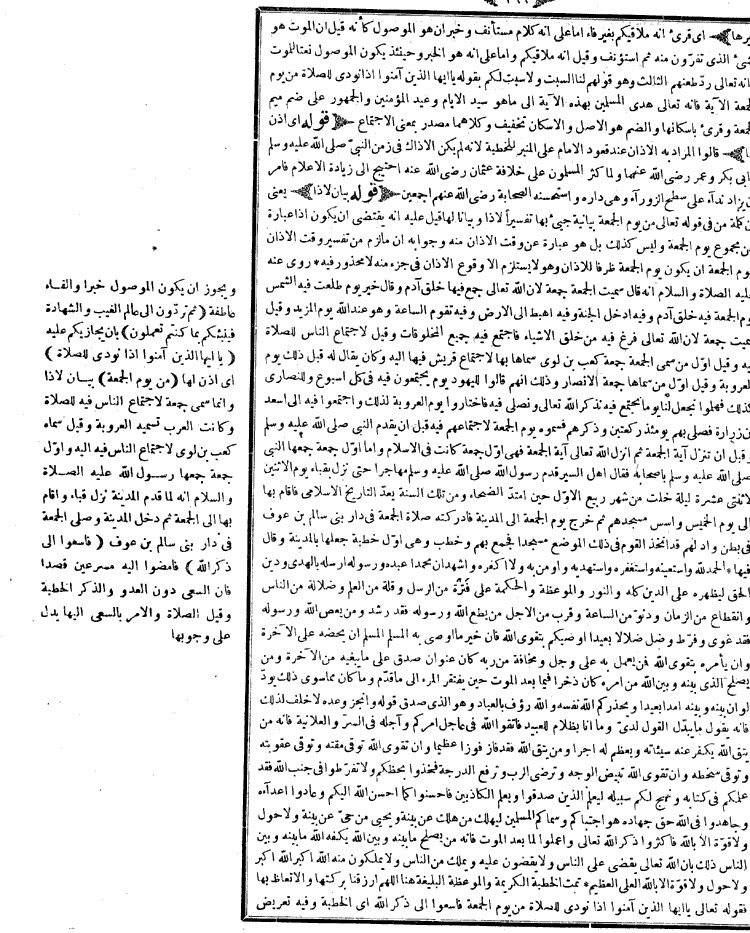 اى قرئ انه ملاقيكم بغير فاء اما على انه كلام مستأنف وخبر ان هو الموصول كأنه قيل ان الموت هو
الذى تفرّون منه ثم استؤنف وقيل انه ملاقيكم واما على انه هو الخبر وحينئذ يكون الموصول نعتا للموت
انه تعالى ردّ طعنهم الثالث وهو قولهم لنا السبت ولا سبت لكم بقوله يا ايها الذين آمنوا اذا نودى للصلاة من يوم
الجمعة الآية فانه تعالى هدى المسلمين بهذه الآية الى ما هو سيد الايام وعيد المؤمنين والجمهور على ضم ميم
الجمعة وقرئ باسكانها والضم هو الاصل والاسكان تخفيف وكلاهما مصدر بمعنى الاجتماع قوله اى اذن
قالوا المراد به الاذان عند قعود الامام على المنبر للخطبة لانه لم يكن الا ذاك فى زمن النبىّ صلى الله عليه وسلم
ابى بكر وعمر رضى الله عنهما ولما كثر المسلمون على خلافة عثمان رضى الله عنه احتيج الى زيادة الاعلام فامر
يزاد ندآء على سطح الزورآء وهى داره واستحسنه الصحابة رضى الله عنهم اجمعين قوله بيان لاذا يعنى
ان كلمة من فى قوله تعالى من يوم الجمعة بيانية جيئ بها تفسيرا لاذا وبيانا لها قيل عليه انه يقتضى ان يكون اذا عبارة
من مجموع يوم الجمعة وليس كذلك بل هو عبارة عن وقت الاذان منه وجوابه ان ما لزم من تفسير وقت الاذان
يوم الجمعة ان يكون يوم الجمعة ظرفا للاذان وهو لا يستلزم الا وقوع الاذان فى جزء منه لا محذور فيه * روى عنه
عليه الصلاة والسلام انه قال سميت الجمعة جمعة لان الله تعالى جمع فيها خلق آدم وقال خير يوم طلعت فيه الشمس
يوم الجمعة فيه خلق آدم وفيه ادخل الجنة وفيه اهبط الى الارض وفيه تقوم الساعة وهو عند الله يوم المزيد وقيل
سميت جمعة لان الله تعالى فرغ فيه من خلق الاشياء فاجتمع فيه جميع المخلوقات وقيل لاجتماع الناس للصلاة
فيه وقيل اوّل من سمى الجمعة جمعة كعب بن لوى سماها بها لاجتماع قريش فيها اليه وكان يقال له قبل ذلك يوم
العروبة وقيل اوّل من سماها جمعة الانصار وذلك انهم قالوا لليهود يوم يجتمعون فيه فى كل اسبوع وللنصارى
كذلك فهلموا نجعل لنا يوما نجتمع فيه نذكر الله تعالى ونصلى فيه فاختاروا يوم العروبة لذلك واجتمعوا فيه الى اسعد
بن زرارة فصلى بهم يومئذ ركعتين وذكرهم فسموه يوم الجمعة لاجتماعهم فيه قبل ان يقدم النبى صلى الله عليه وسلم
وقبل ان تنزل آية الجمعة ثم انزل الله تعالى آية الجمعة فهى اوّل جمعة كانت فى الاسلام واما اوّل جمعة جمعها النبى
صلى الله عليه وسلم باصحابه فقال اهل السير قدم رسول الله صلى الله عليه وسلم مهاجرا حتى نزل بقباء يوم الاثنين
لاثنتى عشرة ليلة خلت من شهر ربيع الاوّل حين امتدّ الضحاء ومن تلك السنة يعدّ التاريخ الاسلامى فاقام بها
الى يوم الخميس واسس مسجدهم ثم خرج يوم الجمعة الى المدينة فادركته صلاة الجمعة فى دار بنى سالم بن عوف
فى بطن واد لهم قد اتخذ القوم فى ذلك الموضع مسجدا فجمع بهم وخطب وهى اوّل خطبة جعلها بالمدينة وقال
فيها * الحمد لله واستعينه واستغفره واستهديه واومن به ولا اكفره واشهد ان محمدا عبده ورسوله ارسله بالهدى ودين
الحق ليظهره على الدين كله والنور والموعظة والحكمة على فترة من الرسل وقلة من العلم وضلالة من الناس
وانقطاع من الزمان ودنوّ من الساعة وقرب من الاجل من يطع الله ورسوله فقد رشد ومن يعص الله ورسوله
فقد غوى وفرّط وضل ضلالا بعيدا اوصيكم بتقوى الله فان خير ما اوصى به المسلم المسلم ان يحضه على الآخرة
وان يأمره بتقوى الله فمن يعمل به على وجل ومخافة من ربه كان عنوان صدق على ما يبغيه من الآخرة ومن
يصلح الذى بينه وبين الله من امره كان ذخرا فيما بعد الموت حين يفتقر المرء الى ما قدّم وما كان مما سوى ذلك يودّ
لو ان بينه وبينه امدا بعيدا ويحذركم الله نفسه والله رؤف بالعباد وهو الذى صدق قوله وانجز وعده لا خلف لذلك
فانه يقول ما يبدّل القول لدىّ وما انا بظلام للعبيد فاتقوا الله فى عاجل امركم وآجله فى السرّ والعلانية فانه من
يتق الله يكفر عنه سيئاته ويعظم له اجرا ومن يتق الله فقد فاز فوزا عظيما وان تقوى الله توقى مقته وتوقى عقوبته
وتوقى سخطه وان تقوى الله تبيض الوجه وترضى الرب وترفع الدرجة فخذوا بحظكم ولا تفرّطوا فى جنب الله فقد
علمكم فى كتابه ونهج لكم سبيله ليعلم الذين صدقوا ويعلم الكاذبين فاحسنوا كما احسن الله اليكم وعادوا اعدآءه
وجاهدوا فى الله حق جهاده هو اجتباكم وسماكم المسلمين ليهلك من هلك عن بينة ويحيى من حىّ عن بينة ولا حول
ولا قوّة الا بالله فاكثروا ذكر الله تعالى واعملوا لما بعد الموت فانه من يصلح ما بينه وبين الله يكفه الله ما بينه وبين
الناس ذلك بان الله تعالى يقضى على الناس ولا يقضون عليه ويملك من الناس ولا يملكون منه الله اكبر الله اكبر
ولا حول ولا قوّة الا بالله العلى العظيم * تمت الخطبة الكريمة والموعظة البليغة هنا اللهم ارزقنا بركتها والاتعاظ بها
فقوله تعالى يا ايها الذين آمنوا اذا نودى للصلاة من يوم الجمعة فاسعوا الى ذكر الله اى الخطبة وفيه تعريض
ويجوز ان يكون الموصول خبرا والفاء
عاطفة (ثم تردّون الى عالم الغيب والشهادة
فينبئكم بما كنتم تعملون) بان يجازيكم عليه
(يا ايها الذين آمنوا اذا نودى للصلاة)
اى اذن لها (من يوم الجمعة) بيان لاذا
وانما سمى جمعة لاجتماع الناس فيه للصلاة
وكانت العرب تسميه العروبة وقيل سماه
كعب بن لوى لاجتماع الناس فيه اليه واوّل
جمعة جمعها رسول الله عليه الصلاة
والسلام انه لما قدم المدينة نزل قباء واقام
بها الى الجمعة ثم دخل المدينة وصلى الجمعة
فى دار بنى سالم بن عوف (فاسعوا الى
ذكر الله) فامضوا اليه مسرعين قصدا
فان السعى دون العدو والذكر الخطبة
وقيل الصلاة والامر بالسعى اليها يدل
على وجوبها